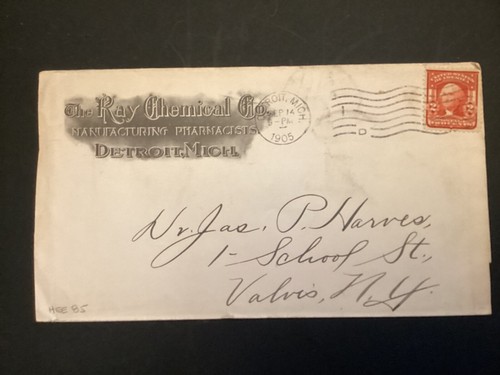 The Ray Chemical Co.
MANUFACTURING PHARMACISTS
DETROIT, MICH.
DETROIT, MICH.
SEP 14
8-PM
1905
D
2 2
Dr. Jas. P. Harves,
1-School St.,
Valvis, N.Y.
HRE 85